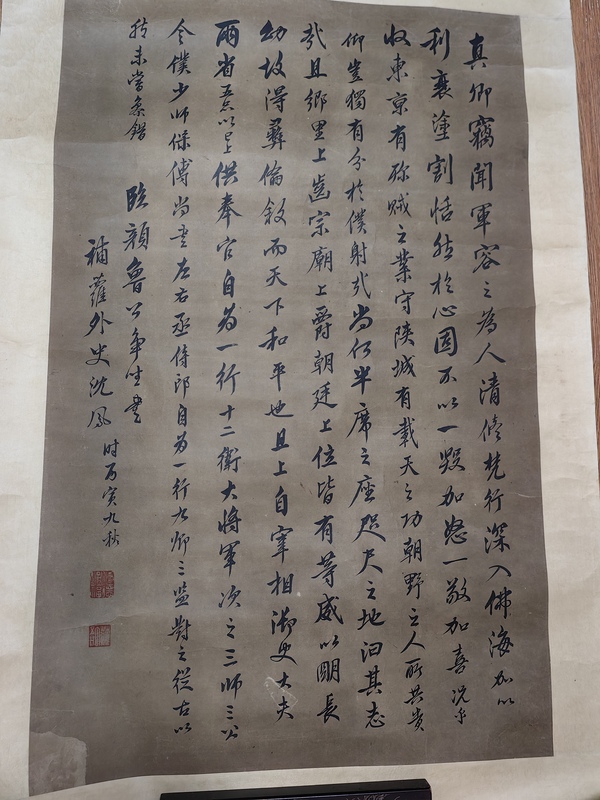 真卿竊聞軍容之為人清修梵行深入佛海加以
利衰塗割恬然於心固不以一毀加怒一敬加喜況乎
收東京有殄賊之業守陝城有戴天之功朝野之人所共貴
仰豈獨有分於僕射哉尚何半席之座咫尺之地汩其志
哉且鄉里上齒宗廟上爵朝廷上位皆有等威以明長
幼故得彝倫敘而天下和平也且上自宰相御史大夫
兩省五品以上供奉官自為一行十二衛大將軍次之三師三公
令僕少師保傅尚書左右丞侍郎自為一行九卿三監對之從古以
然未嘗參錯
臨顏魯公爭坐書
補蘿外史沈鳳 時丙寅九秋